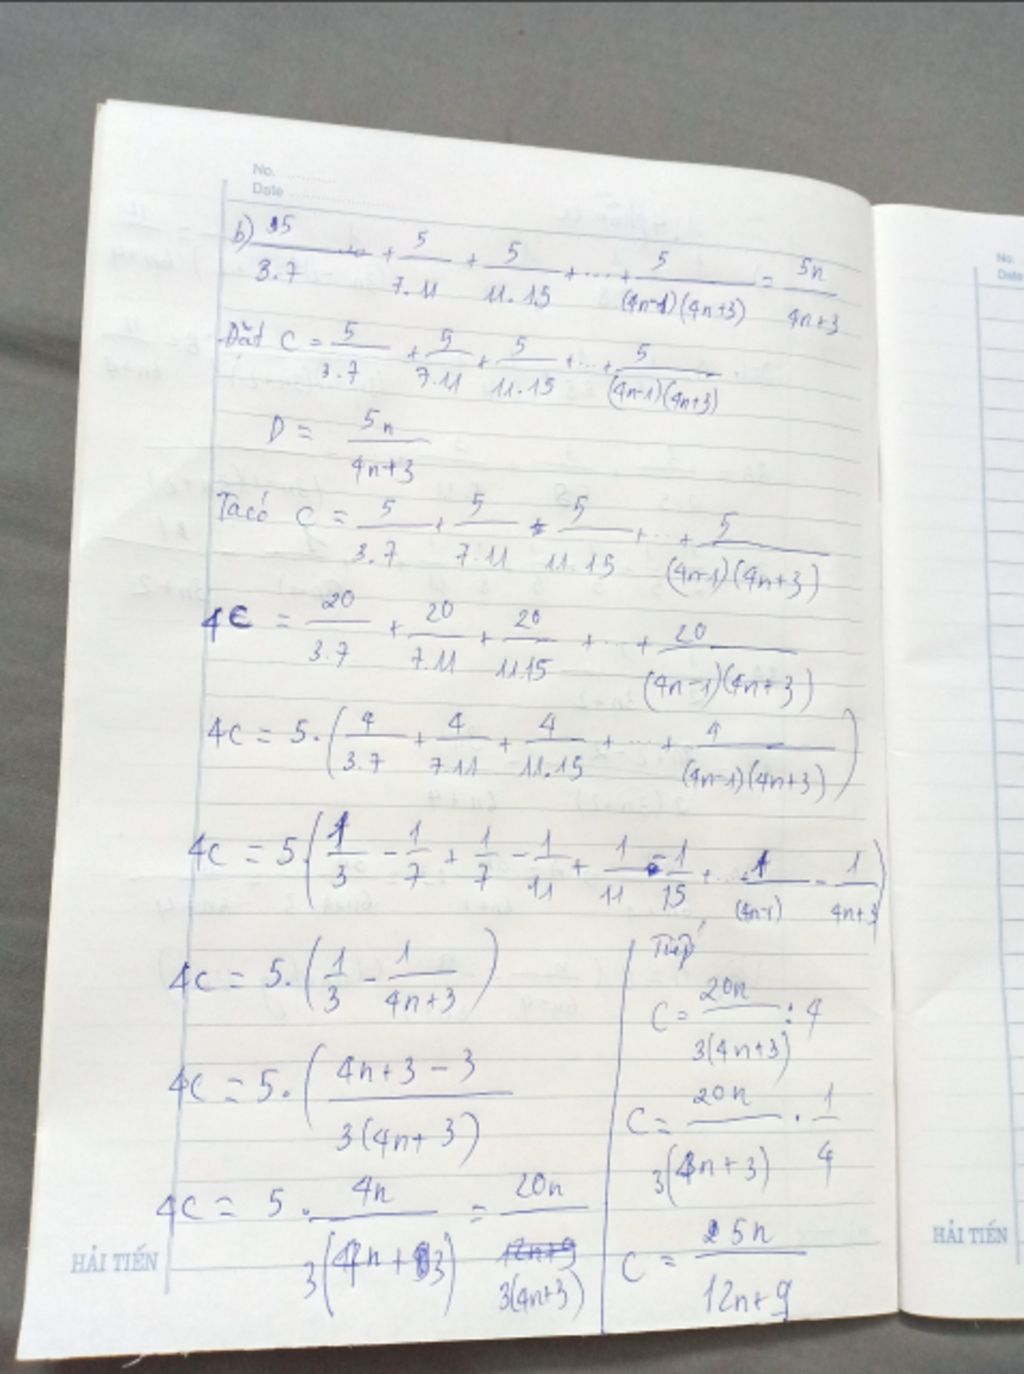 No.
Date
b) 5/3.7 + 5/7.11 + 5/11.15 + ... + 5/(4n-1)(4n+3) = 5n/4n+3
Đặt C = 5/3.7 + 5/7.11 + 5/11.15 + ... + 5/(4n-1)(4n+3)
D = 5n/4n+3
Ta có C = 5/3.7 + 5/7.11 + 5/11.15 + ... + 5/(4n-1)(4n+3)
4C = 20/3.7 + 20/7.11 + 20/11.15 + ... + 20/(4n-1)(4n+3)
4C = 5.(4/3.7 + 4/7.11 + 4/11.15 + ... + 4/(4n-1)(4n+3))
4C = 5(1/3 - 1/7 + 1/7 - 1/11 + 1/11 - 1/15 + ... 1/(4n-1) - 1/4n+3)
4C = 5.(1/3 - 1/4n+3)
4C = 5.(4n+3-3/3(4n+3)
4C = 5 . 4n/3(4n+3) = 20n/3(4n+3)
Tiếp
C = 20n/3(4n+3) : 4
C = 20n/3(4n+3) . 1/4
C = 5n/12n+9
HẢI TIẾN
No.
Date
HẢI TIẾN